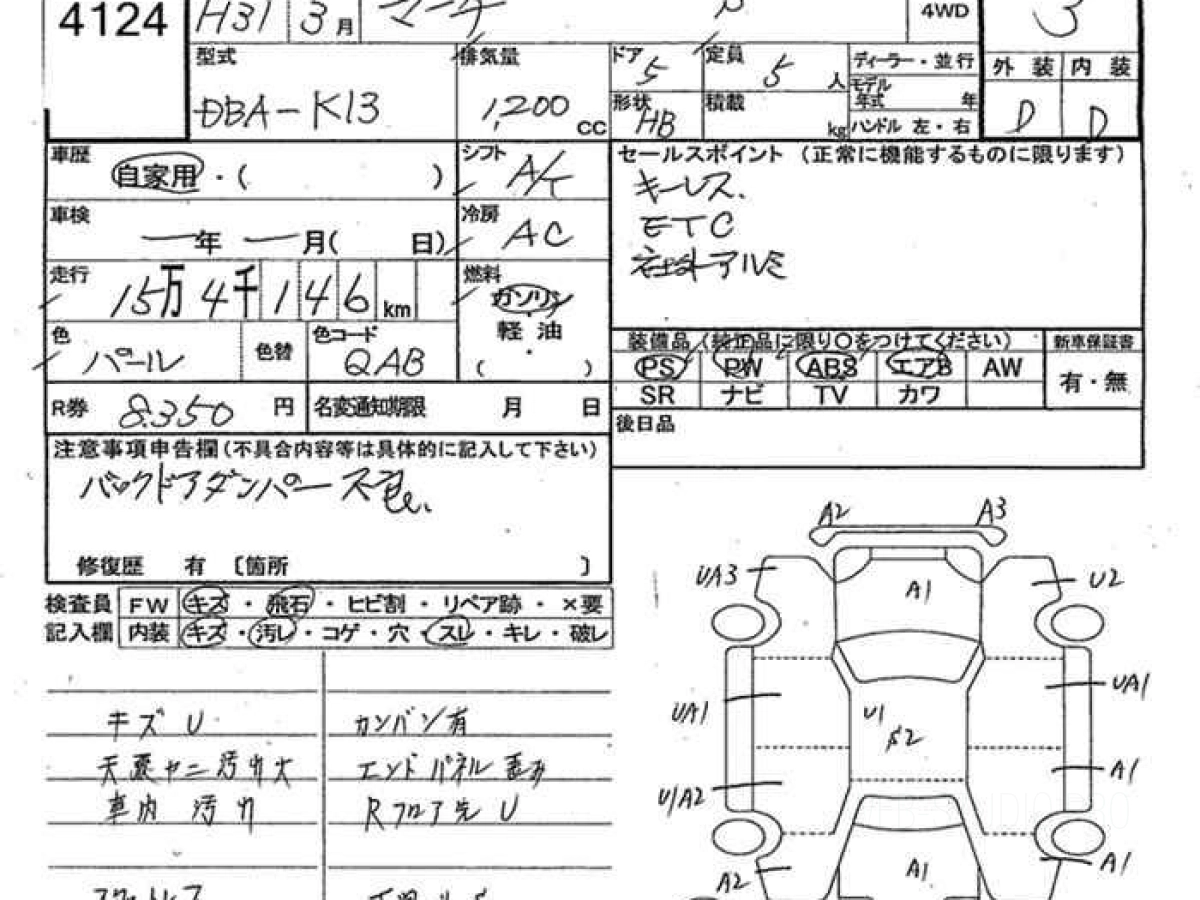 4124 H31 3月 マーチ 4WD 3
型式 排気量 ドア 5 定員 5人 ディーラー・並行 外装 内装
DBA-K13 1,200cc 形状 HB 積載 kg モデル年式 年 D D
ハンドル 左・右
車歴 自家用・( ) シフト A/T セールスポイント (正常に機能するものに限ります)
キーレス.
車検 一年 一月( 日) 冷房 AC ETC
社外アルミ
走行 15万4千146km 燃料 ガソリン
軽・油
( )
色 パール 色替 色コード QAB
装備品 (純正品に限り〇をつけてください) 新車保証書
PS PW ABS エアB AW 有・無
SR ナビ TV カワ
R券 8.350円 名変通知期限 月 日 後日品
注意事項申告欄(不具合内容等は具体的に記入して下さい)
バックドアダンパー不良.
修復歴 有 〔箇所 〕
検査員 FW キズ・飛石・ヒビ割・リペア跡・×要
記入欄 内装 キズ・汚レ・コゲ・穴・スレ・キレ・破レ
キズ U カンバン有
天裏ヤニ汚れ大 エンドパネル歪み
車内 汚れ Rフロア先 U
A2 A3
UA3 A1 U2
UA1 U1 UA1
S2
UA2 A1
A2 A1 A1